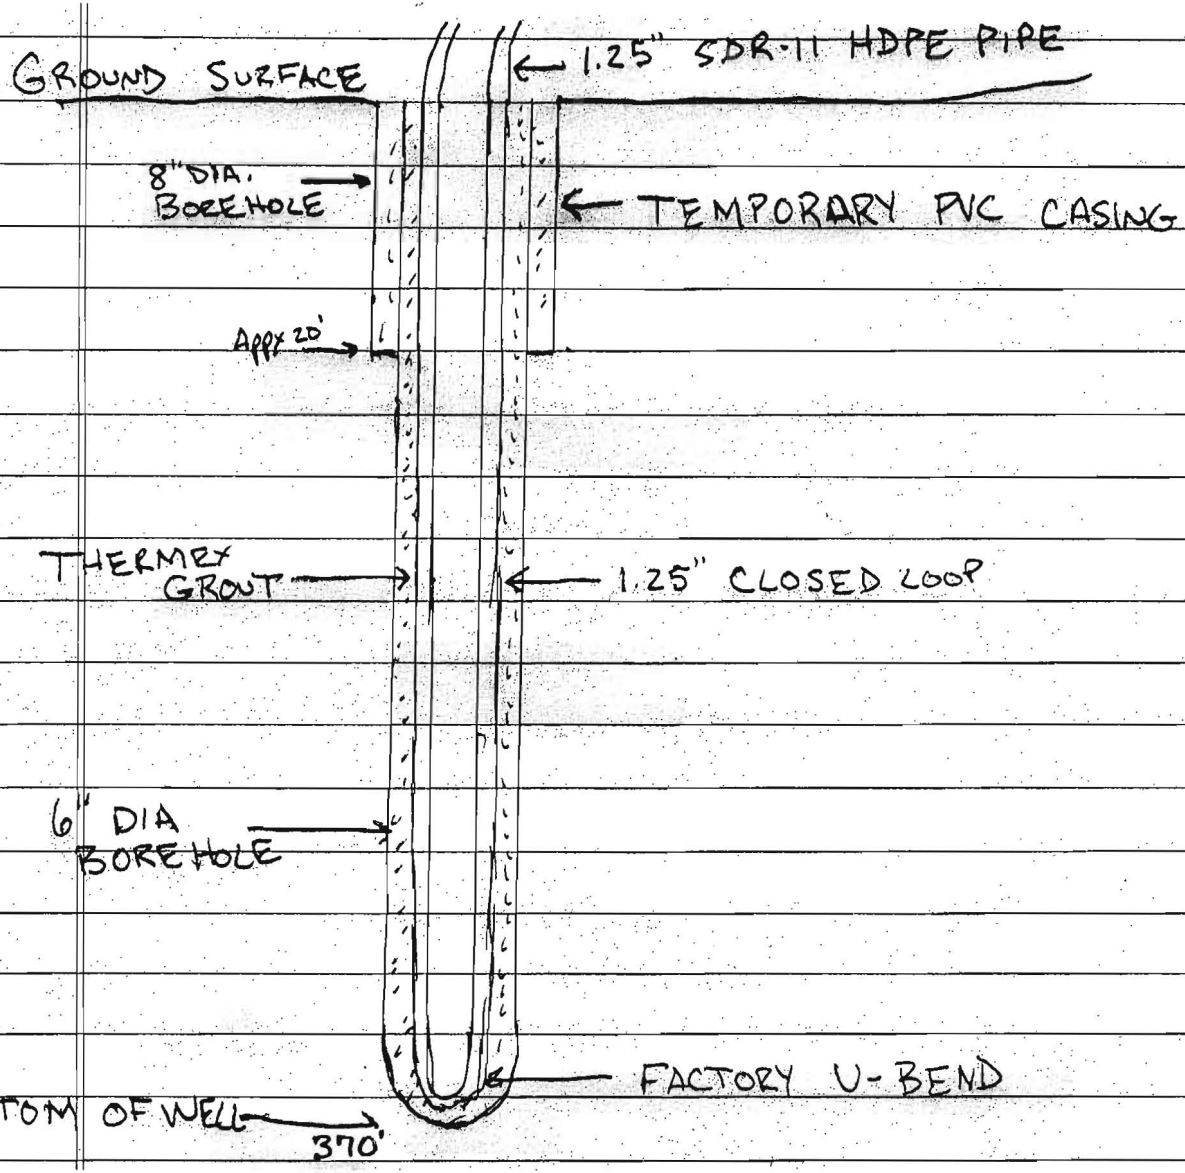 1.25" SDR-11 HDPE PIPE
GROUND SURFACE
8" DIA.
BOREHOLE
TEMPORARY PVC CASING
APPX 20'
THERMEX
GROUT
1.25" CLOSED LOOP
6" DIA
BOREHOLE
FACTORY U-BEND
TOM OF WELL
370'